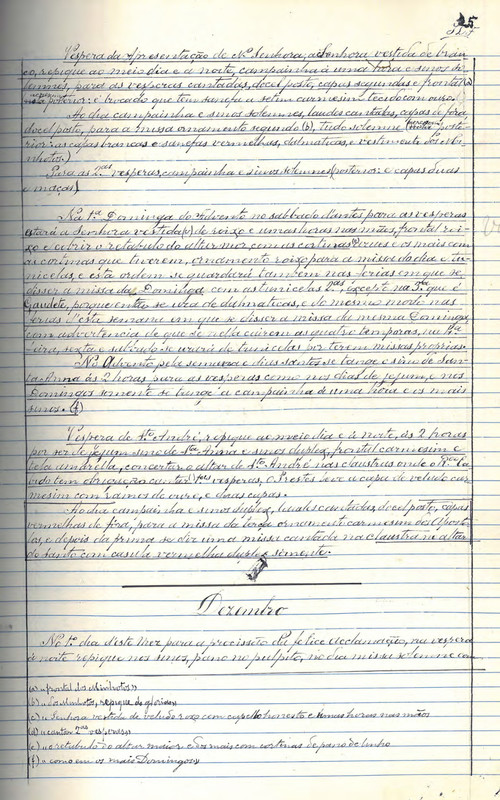 25
Vespera da Apresentação de N. Senhora, a Senhora vestida de bran-
co, repique ao meio dia e a noite, campainha à uma hora e sinos so-
lemnes, para as vesperas cantadas, docel posto, capas segundas e frontal (a)
posterior: é brocado que tem sanefa a setim carmesim tecido com ouro.
Ao dia campainha e sinos solemnes, laudes cantadas, capas de fora,
docel posto, para a missa ornamento segundo (b), tudo solemne poste-
rior: as capas brancas e sanefas vermelhas, dalmaticas, e vestimenta dos Mi-
nhotos.)
Para as 2.as vesperas, campainha e sinos solemnes (posterior: e capas duas
e maças)
Na 1.ª Dominga do Advento no sabbado diante para as vesperas
estará a Senhora vestida (c) de roixo e umas horas nas mãos, frontal roi-
xo e cobrir o retabulo do altar mor, com as cortinas e os mais com
as cortinas que tiverem, ornamento roixo para a missa do dia e tu-
nicelas, e esta ordem se guardará tambem nas ferias em que se
disser a missa da Dominga com as tunicelas, excepto na 3.ª que é
Gaudete, porque então se usa de dalmaticas, e do mesmo modo nas
ferias d'esta semana em que se disser a missa da mesma Dominga,
com advertencia de que se nella cairem as quatro temporas, na 4.ª
feira, sexta e sabbado se usará de tunicelas por terem missas proprias.
No Advento pela semana e dias santos se tange o sino de San-
ta Anna ás 2 horas para as vesperas como nos dias de jejum, e nos
Domingos somente se tange a campainha á uma hora e os mais
sinos. (f)
Vespera de S.to André, repique ao meio dia e á noite, ás 2 horas
por ser de jejum sino de S.ta Anna e sinos duplex, frontal carmesim e
tela amarella, concertar o altar de S.to André nas claustras onde o
tem obrigação cantar vesperas, o Prestes leve a capa de veludo car-
mesim com ramos de ouro, e duas capas.
Ao dia campainha e sinos duplex, laudes cantadas, docel posto, capas
vermelhas de fora, para a missa da terça ornamento carmesim dos Aposto-
los, e depois da prima se diz uma missa cantada na claustra no altar
do santo com casula vermelha duplex somente.
Dezembro
No 1.º dia d'este mez para a procissão da felice acclamação, na vespera
á noite repique nos sinos, pano no pulpito, no dia missa solemne com
(a) « frontal dos Minhotos »
(b) « dos Minhotos, repique da gloria »
(c) « Senhora vestida de veludo roxo com capello honesto e humas horas nas mãos
(d) « cantar 2.as vesperas »
(e) « o retabulo do altar maior e dos mais com cortinas de pano de linho
(f) « como em os mais Domingos »